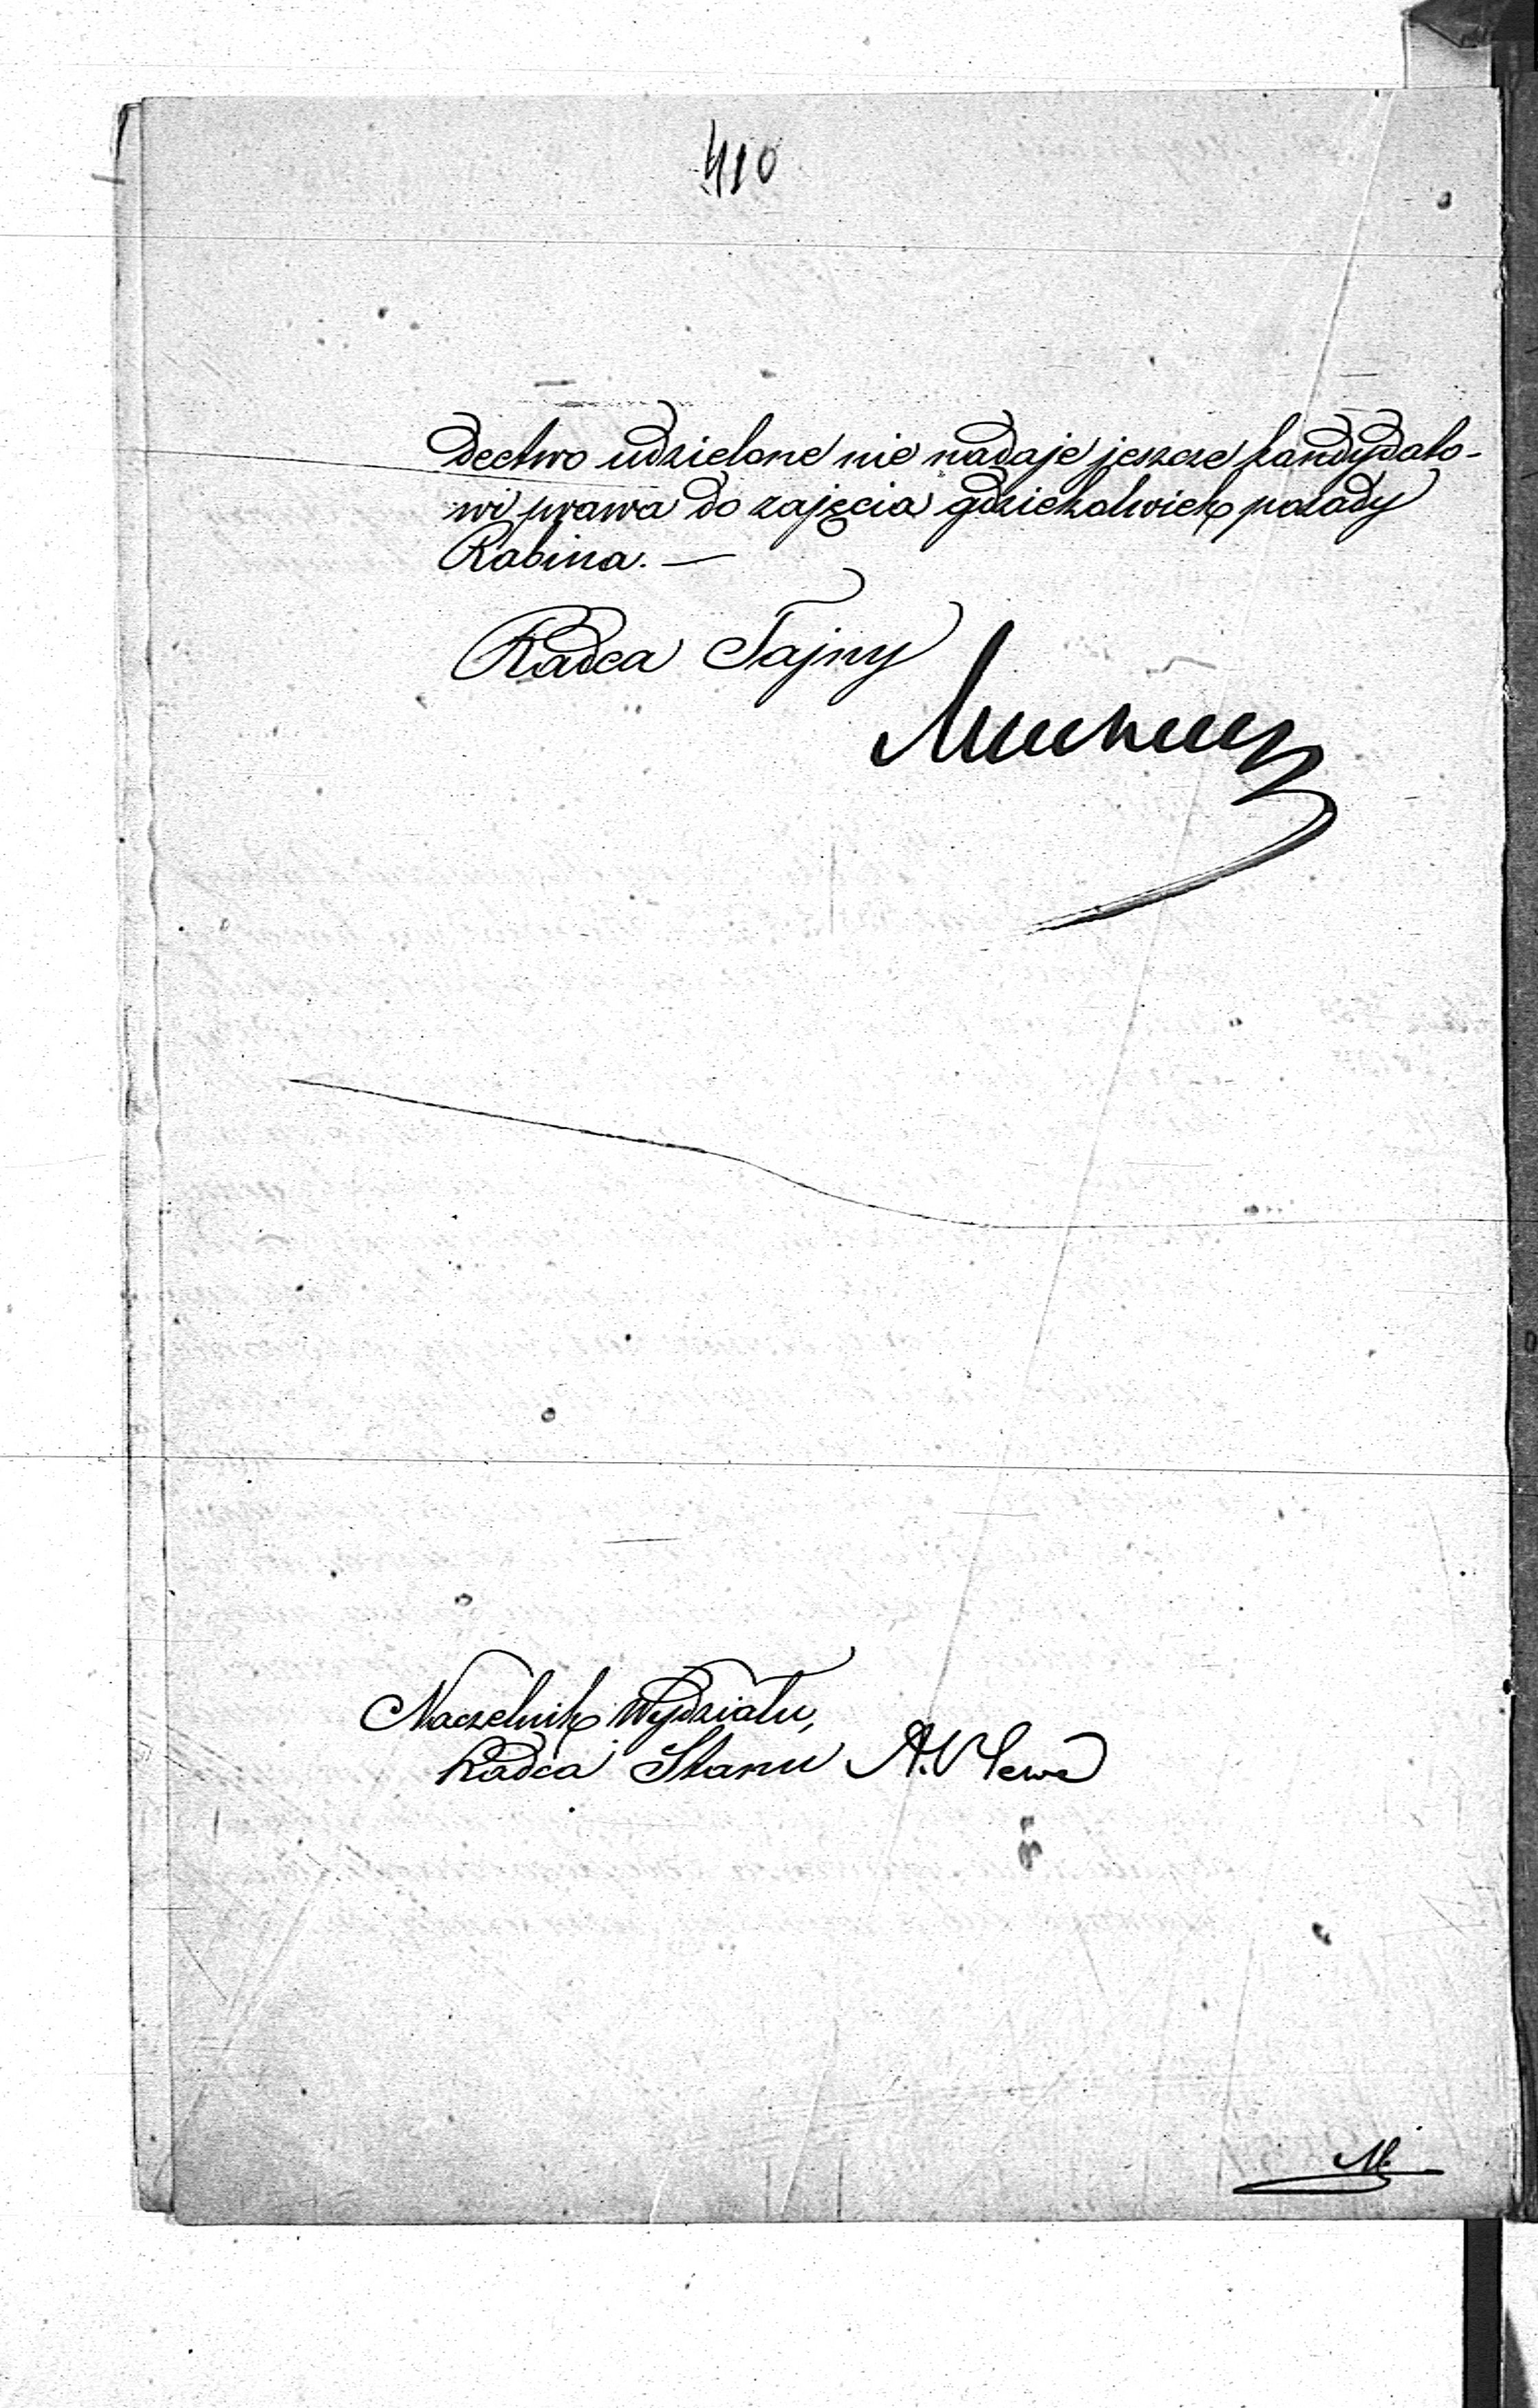 410
dectwo udzielone nie nadaje jeszcze kandydato-
wi prawa do zajęcia gdziekolwiek posady
Rabina. —
Radca Tajny
Naczelnik Wydziału,
Radca Stanu A.